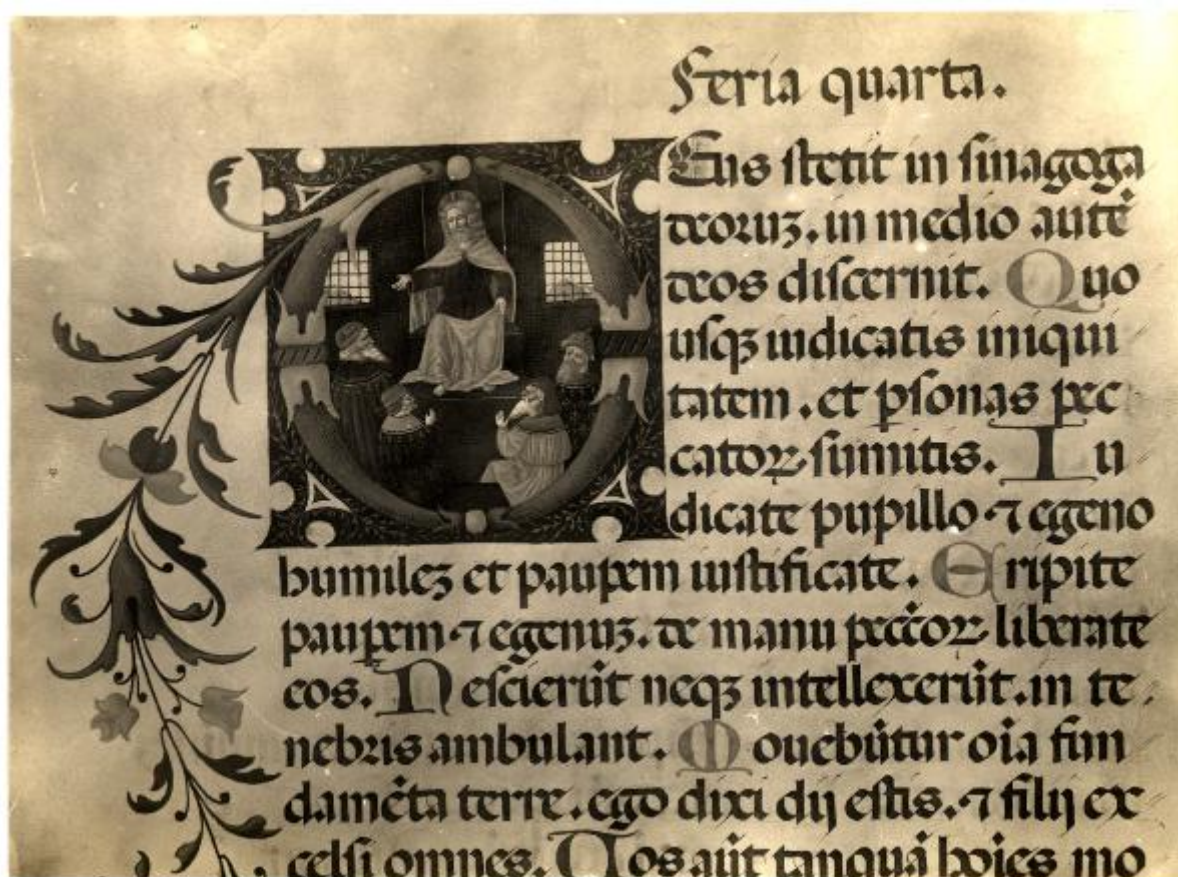 Feria quarta.
Eus stetit in sinagoga
deoruꝫ. in medio autē
deos discernit. Quo
usqꝫ iudicatis iniqui
tatem. et ꝑsonas pec
catoꝝ sumitis. Iu
dicate pupillo ⁊ egeno
humileꝫ et pauꝑem iustificate. Eripite
pauꝑem ⁊ egenuꝫ. de manu pecc̄toꝝ liberate
eos. Nescierūt neqꝫ intellexerūt. in te
nebris ambulant. Mouebūtur oīa fun
damēta terre. ego dixi dij estis. ⁊ filij ex
celsi omnes. Uos aūt tanquā hoīes mo